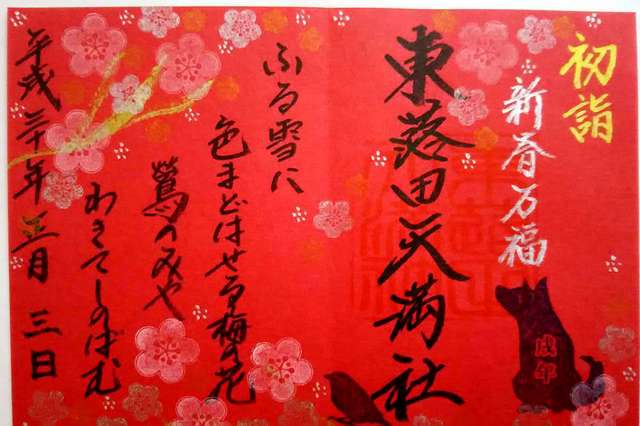 初詣
新春万福
戌年
東蕗田天満社
ふる雪に
色まどはせる梅の花
鶯のみや
わきてしのばむ
平成三十年 一月 三日